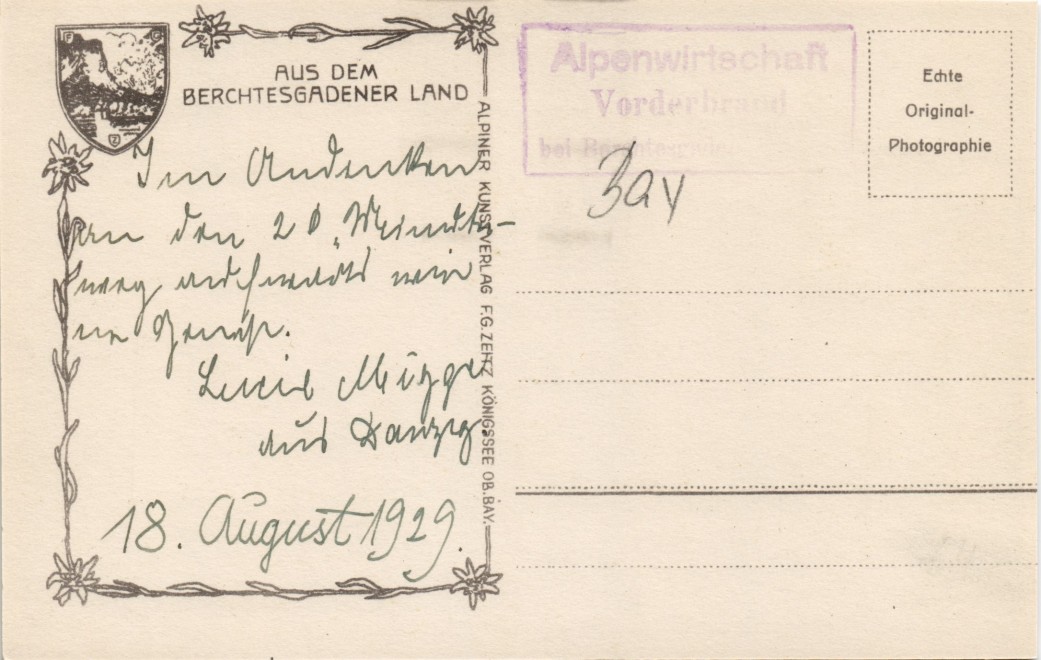 AUS DEM
BERCHTESGADENER LAND
Im Andenken
an den 20 Minuten-
weg aufwärts
Lucie Mügge
aus Danzig.
18. August 1929.
ALPINER KUNSTVERLAG F.G. ZEITZ KÖNIGSSEE OB. BAY.
Alpenwirtschaft
Vorderbrand
bei Berchtesgaden
Bay
Echte
Original-
Photographie
F
G
Z